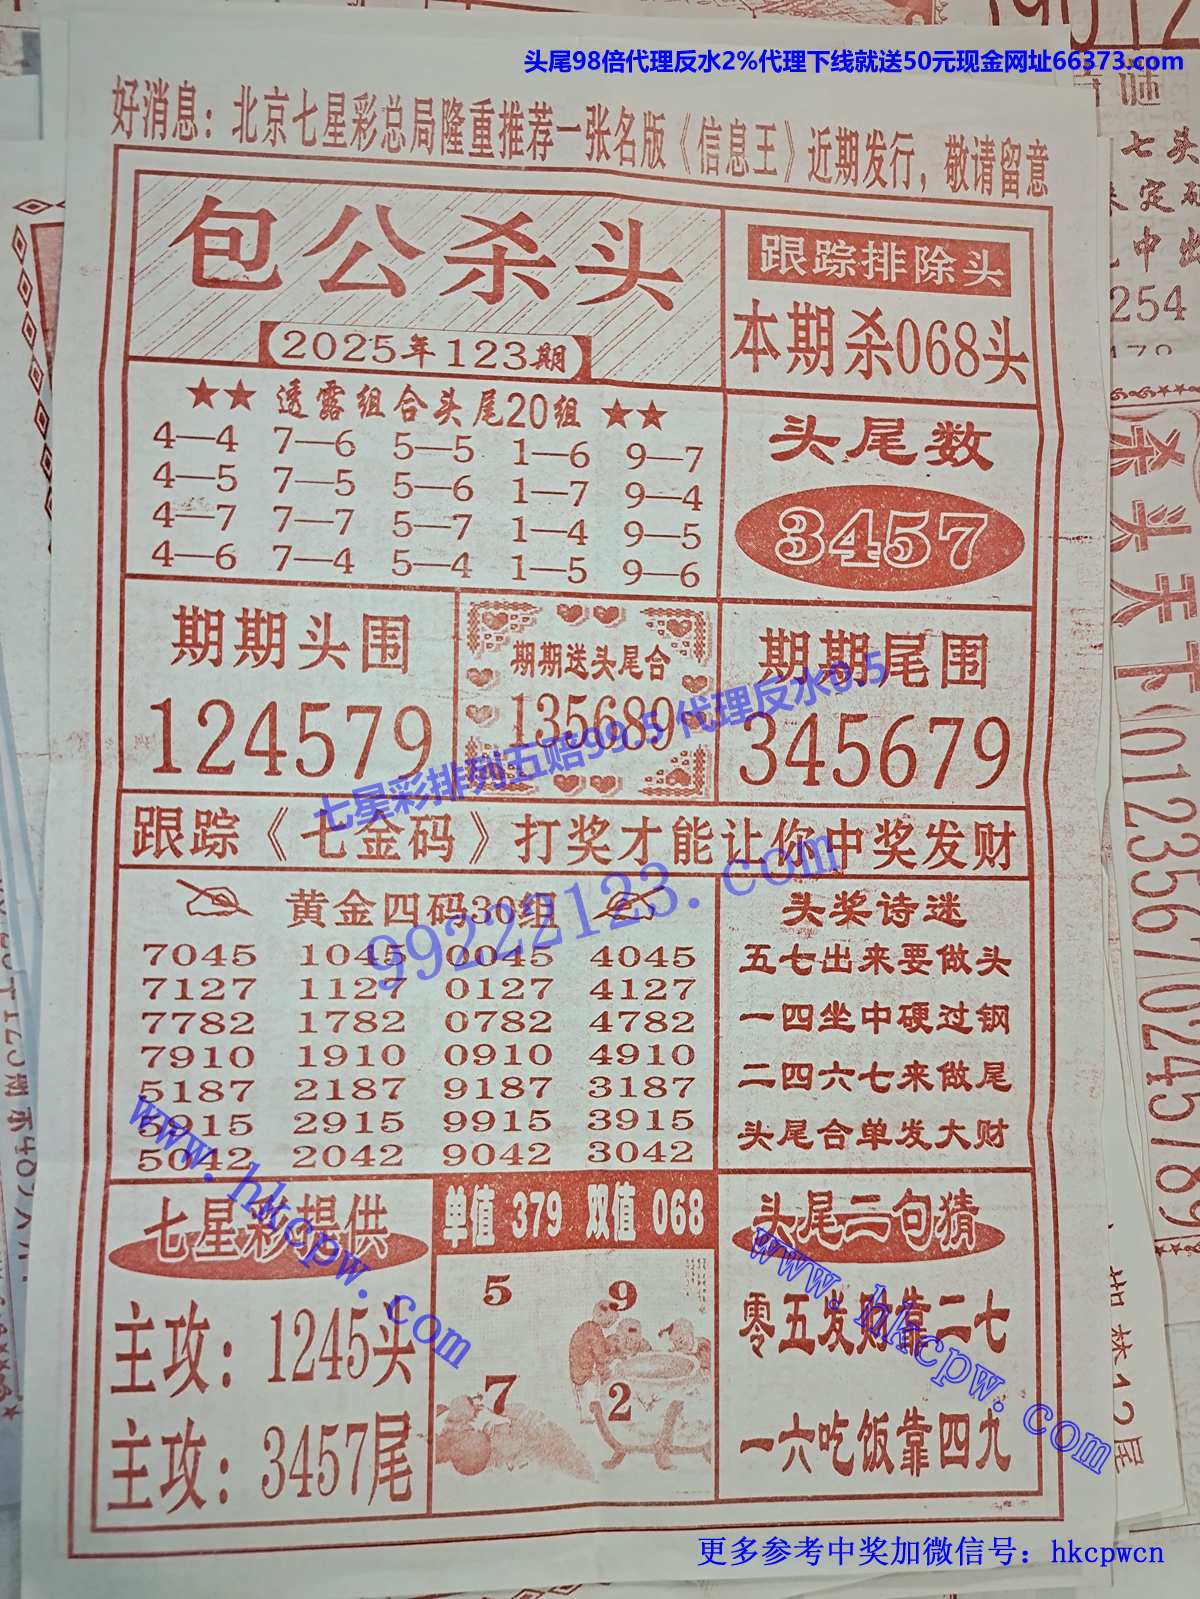 头尾98倍代理反水2%代理下线就送50元现金网址66373.com
好消息：北京七星彩总局隆重推荐一张名版《信息王》近期发行，敬请留意
包公杀头
2025年123期
跟踪排除头
本期杀068头
★★ 透露组合头尾20组 ★★
4—4 7—6 5—5 1—6 9—7
4—5 7—5 5—6 1—7 9—4
4—7 7—7 5—7 1—4 9—5
4—6 7—4 5—4 1—5 9—6
头尾数
3457
期期头围
124579
期期送头尾合
135689
期期尾围
345679
七星彩排列五赔99.5 代理反水9.5
跟踪《七金码》打奖才能让你中奖发财
99222123.com
黄金四码30组
7045 1045 0045 4045
7127 1127 0127 4127
7782 1782 0782 4782
7910 1910 0910 4910
5187 2187 9187 3187
5915 2915 9915 3915
5042 2042 9042 3042
头奖诗迷
五七出来要做头
一四坐中硬过钢
二四六七来做尾
头尾合单发大财
www.hkcpw.com
七星彩提供
主攻：1245头
主攻：3457尾
单值 379 双值 068
5 9
7 2
头尾二句猜
零五发财靠二七
一六吃饭靠四九
www.hkcpw.com
更多参考中奖加微信号：hkcpwcn
七头
定
中出
254
杀头天下
0123567
0245789
12尾